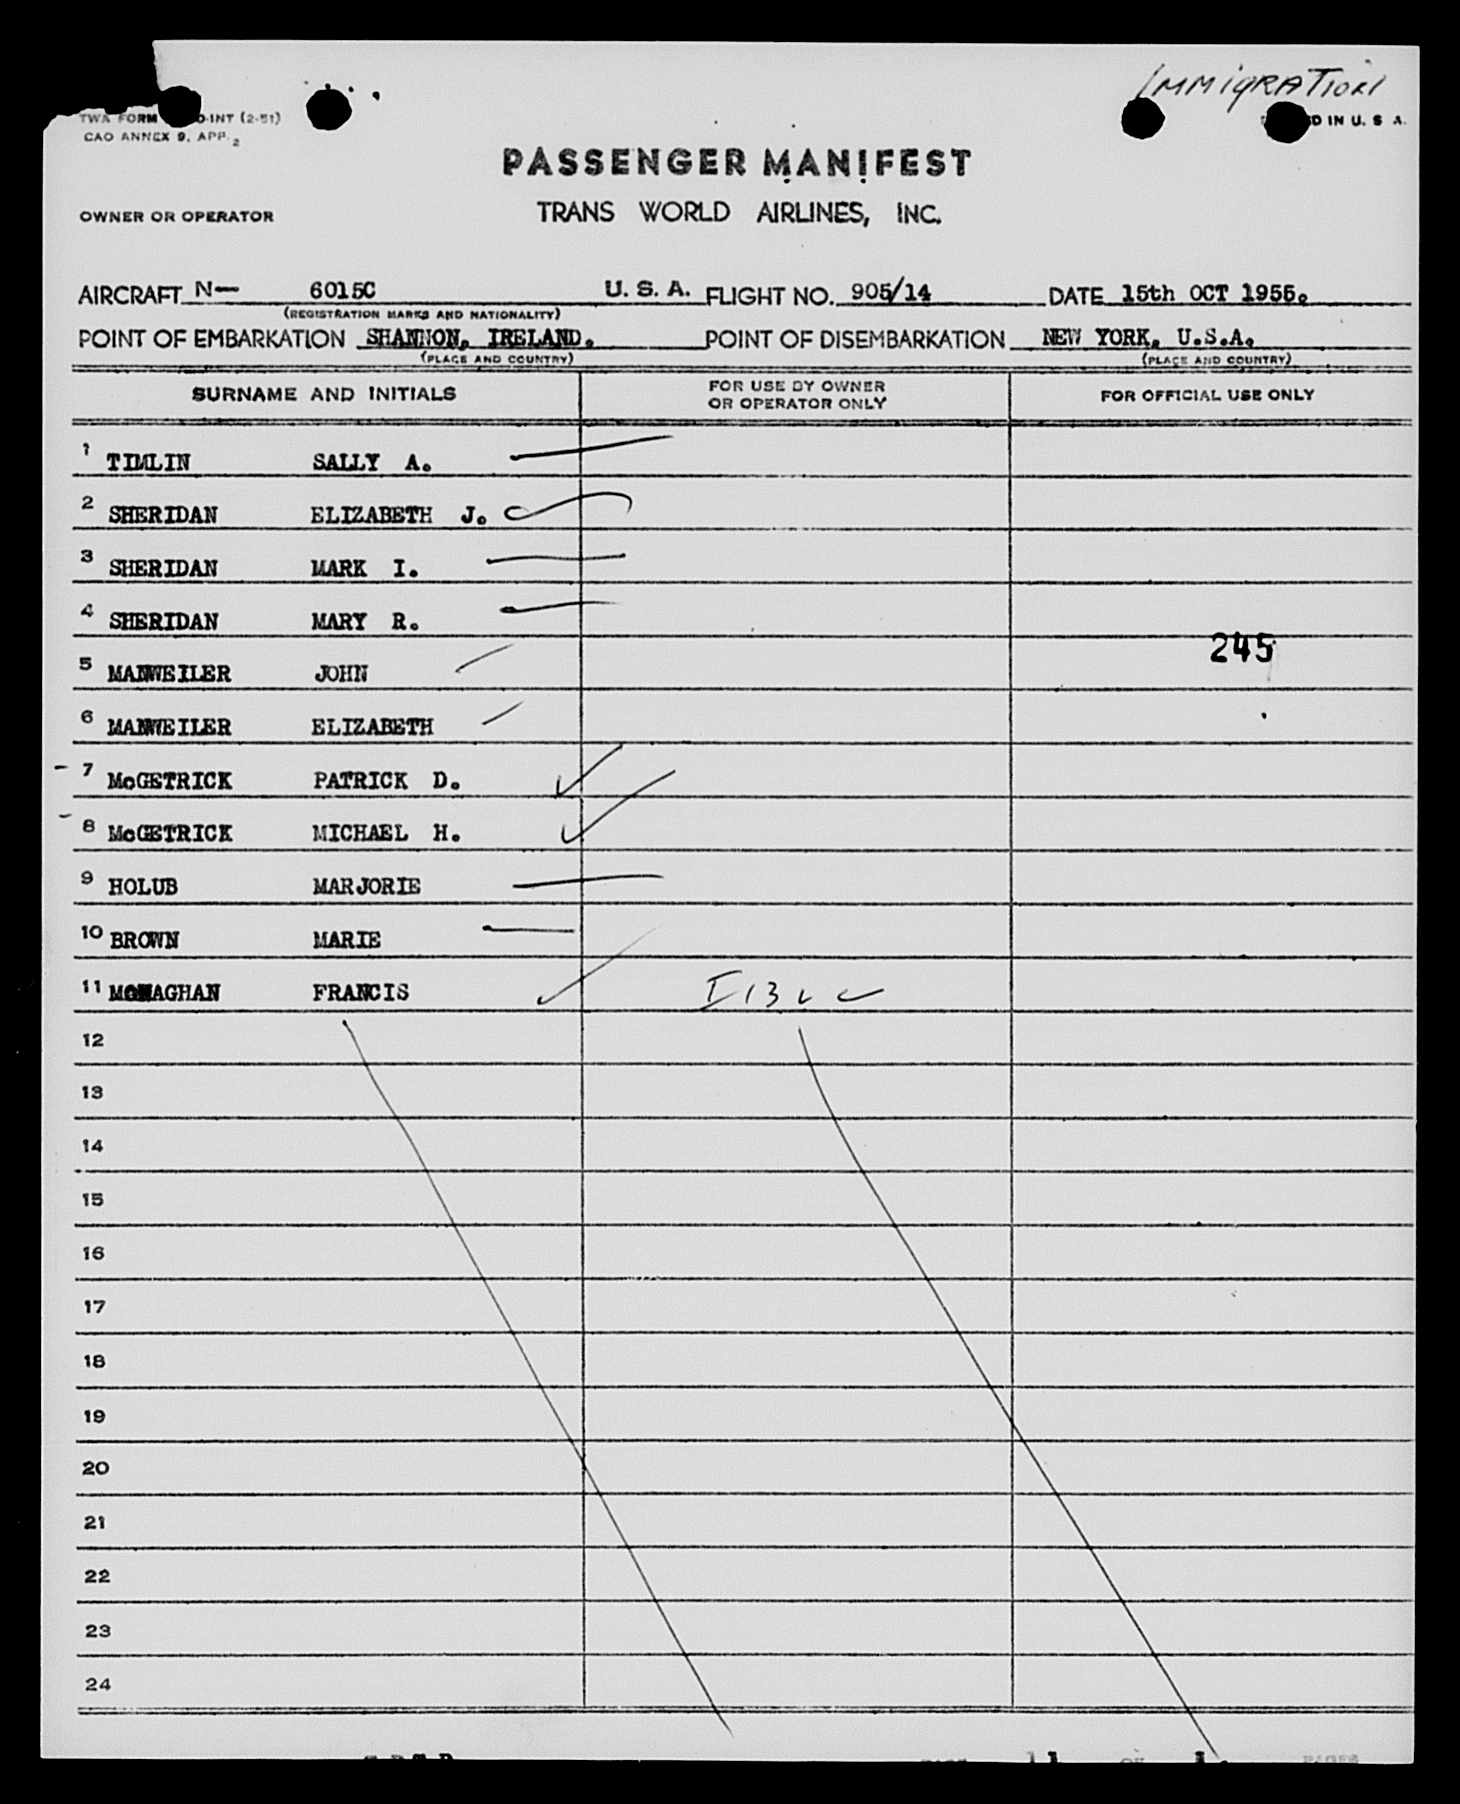 IMMIGRATION
TWA FORM O-INT (2-51)
CAO ANNEX 9, APP. 2
D IN U. S A.
PASSENGER MANIFEST
OWNER OR OPERATOR TRANS WORLD AIRLINES, INC.
AIRCRAFT N— 6015C U. S. A. FLIGHT NO. 905/14 DATE 15th OCT 1955.
(REGISTRATION MARKS AND NATIONALITY)
POINT OF EMBARKATION SHANNON, IRELAND. POINT OF DISEMBARKATION NEW YORK, U.S.A.
(PLACE AND COUNTRY) (PLACE AND COUNTRY)
SURNAME AND INITIALS FOR USE BY OWNER OR OPERATOR ONLY FOR OFFICIAL USE ONLY
1 TIMLIN SALLY A.
2 SHERIDAN ELIZABETH J.
3 SHERIDAN MARK I.
4 SHERIDAN MARY R.
245
5 MANWEILER JOHN
6 MANWEILER ELIZABETH
7 McGETRICK PATRICK D.
8 McGETRICK MICHAEL H.
9 HOLUB MARJORIE
10 BROWN MARIE
11 MONAGHAN FRANCIS
12
13
14
15
16
17
18
19
20
21
22
23
24
PAGES